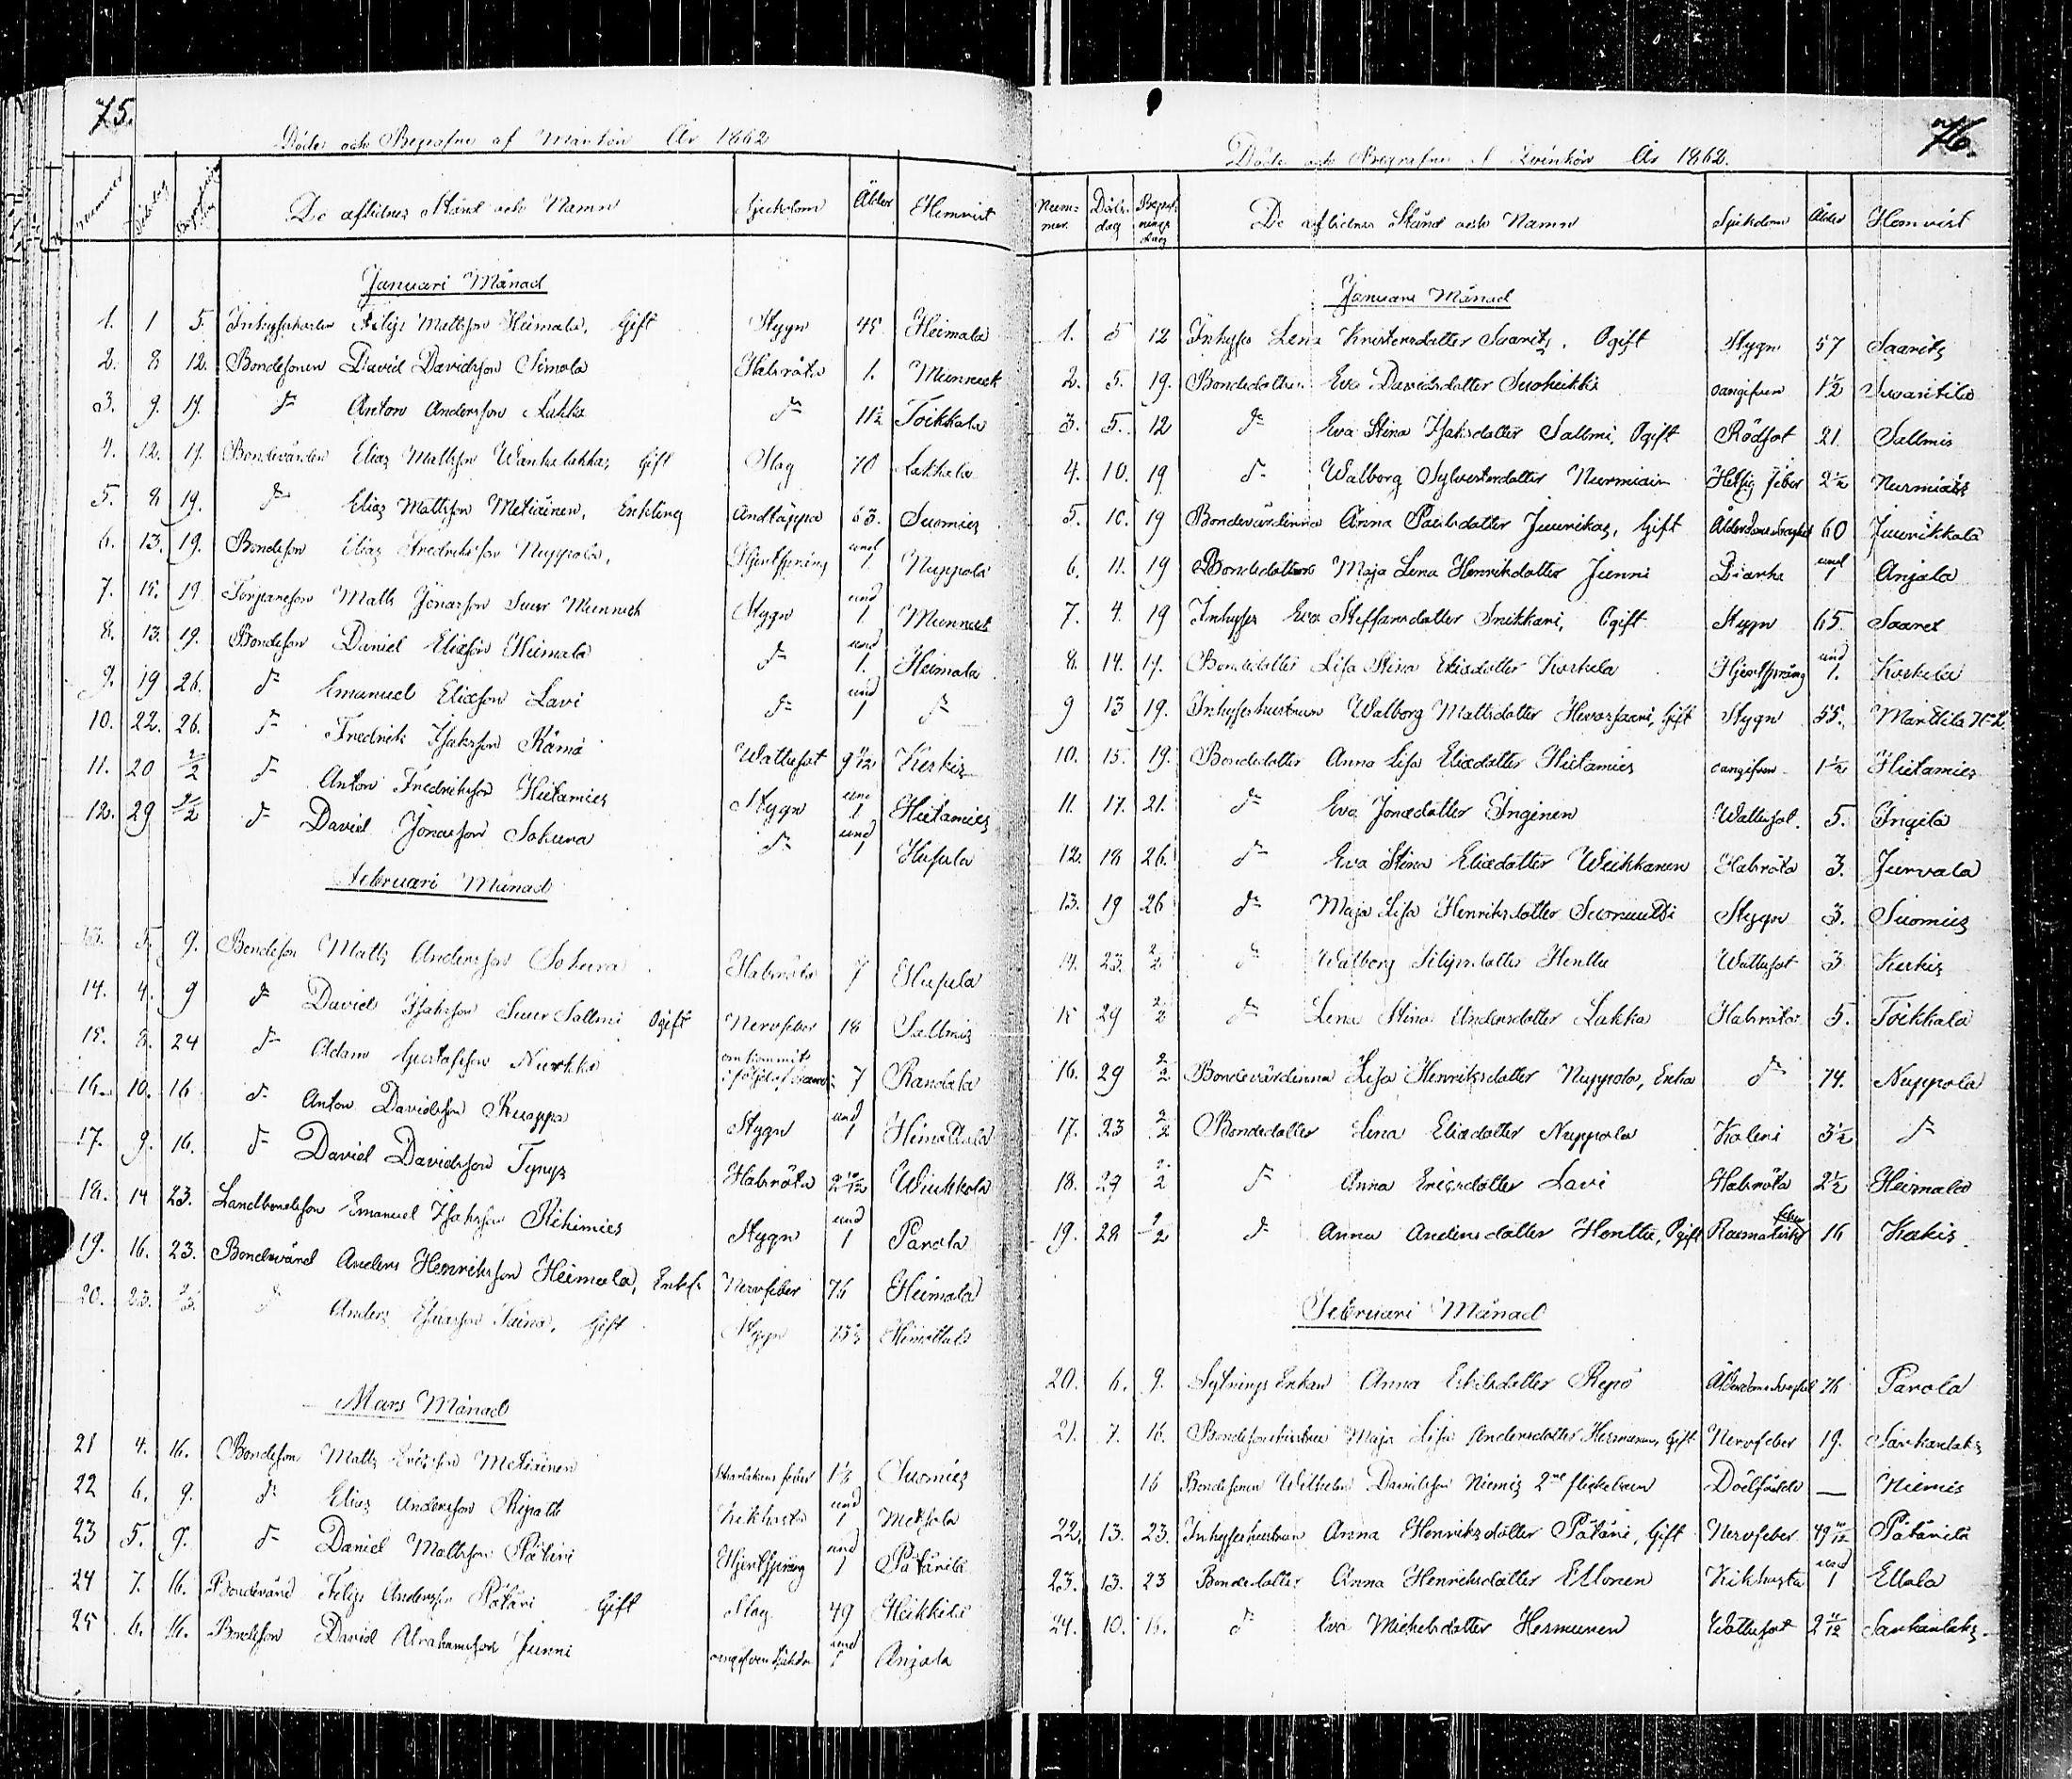 75.
Döde och Begrafne af Mankön År 1862
Nummer Dödsdag Begrafnings dag De aflidnes Stånd och Namn Sjukdom Ålder Hemvist
Januari Månad
1. 1 5. Inhyseskarlen Filip Mattsson Heimala, Gift Stygn 45 Heimala
2. 8 12. Bondesonen David Davidsson Simola Halsröta 1. Munnuk
3. 9. 19. dº Anton Andersson Lakka dº 11½ Toikkala
4. 12. 19. Bondevärden Elias Mattsson Gift Slag 70 Lakkala
5. 8 19. dº Elias Mattsson Metiäinen, Enkling Andtäppa 63. Suomies
6. 13. 19. Bondeson Elias Fredriksson Nuppola, Hjertsprång und 1 Nuppola
7. 15. 19 Matts Jonasson Suur Munnuk Stygn und 1 Munnuk
8. 13. 19. Bondeson Daniel Eliasson Heimala dº und 1. Heimala
9. 19 26. dº Emanuel Eliasson Lavi dº und 1 dº
10. 22. 26. dº Fredrick Isaksson Rämä Wattusot Kerkis
11. 20 2/2 dº Anton Fredriksson Hietamies Stygn und 1 Hietamies
12. 29 2/2 dº David Jonasson Sokura dº und 1 Hufula
Februari Månad
13. 5. 9. Bondeson Matts Andersson Sokura Halsröta 7 Hufula
14. 4. 9 dº David Isaksson Suur Sallmi Ogift Nervfeber 18 Sallmis
15. 3. 24 dº Adam Gustafsson Nurkka omkommit i följd af 7 Randala
16. 10. 16 dº Anton Davidsson Ruoppa Stygn und 1 Himottula
17. 9. 16. dº David Davidsson Typys Halsröta 2 10/12 Wiukkola
18. 14 23. Landbondeson Emanuel Isaksson Rihimies Stygn und 1 Parola
19. 16. 23. Bondevärd Anders Henriksson Heimala, Enkl. Nervfeber 76 Heimala
20. 23. 2/3. dº Anders Gift Stygn Himottula
Mars Månad
21 4. 16. Bondeson Matts Ericsson Metiäinen Skarlakans feber 1½ Suomies
22 6. 9. dº Elias Andersson Ripatti Kikhosta und 1 Metsola
23 5. 9. dº Daniel Mattsson Pätäri Hjertsprång und 1 Pätärilä
24 7. 16. Bondevärd Filip Andersson Pätäri Gift Slag 49 Heikkilä
25 6. 16. Bondeson David Abrahamsson Junni oangifven sjukdom und 1 Anjala
76.
Döde och Begrafne af Qvinkön År 1862.
Num-mer. Döds-dag Begrafnings dag De aflidnes Stånd och Namn Sjukdom Ålder Hemvist
Januari Månad
1. 5 12 Inhyses Lena Kristersdotter Saarits, Ogift Stygn 57 Saarits
2. 5. 19. Bondedotter Eva Davidsdotter Suoheikki oangifven 1½ Suvantila
3. 5. 12 dº Eva Stina Isaksdotter Sallmi, Ogift Rödsot 21. Sallmis
4. 10. 19 dº Walborg Sylvestersdotter Nurmiain Hetsig feber 2½ Nurmiais
5. 10. 19 Bondevärdinna Anna Paulsdotter Juurikas, Gift Ålderdomssvaghet 60 Juurikkala
6. 11. 19 Bondedotter Maja Lena Henriksdotter Junni Diarhe und 1 Anjala
7. 4. 19 Inhyses Eva Steffansdotter Snikkari, Ogift Stygn 65. Saaret
8. 14. 19. Bondedotter Lisa Stina Eliædotter Koskela Hjertsprång und 1. Koskela
9 13 19. Inhyseshustrun Walborg Mattsdotter Hevossaari, Gift Stygn 55. Marttila Nº 2
10. 15. 19. Bondedotter Anna Lisa Eliædotter Hietamies oangifven 1½ Hietamies
11. 17. 21. dº Eva Jonædotter Inginen Wattusot. 5. Ingila
12. 18 26. dº Eva Stina Eliædotter Weikkanen Halsröta 3. Jurvala
13. 19 26 dº Maja Lisa Henriksdotter Suomutti Stygn 3. Suomies
14. 23. 2/2 dº Walborg Filipsdotter Henttu Wattusot 3 Kerkis
15 29 2/2 dº Lena Stina Andersdotter Lakka Halsröta 5. Toikkala
16. 29 2/2 Bondevärdinna Lisa Henriksdotter Nuppola, Enka dº 74. Nuppola
17. 23 2/2 Bondedotter Lena Eliædotter Nuppola Koleni 3½ dº
18. 29 2/2 dº Anna Ericsdotter Lavi Halsröta 2½ Heimala
19. 28 2/2 dº Anna Andersdotter Henttu, Ogift Reumatisk feber 16 Kerkis
Februari Månad
20. 6. 9. Sytnings Enkan Anna Eskilsdotter Repo Ålderdomssvaghet 76 Parola
21. 7. 16. Bondesonshustru Maja Lisa Andersdotter Hermunen, Gift Nervfeber 19. Sarkanlaks
16 Bondesonen Wilhelm Davidsson Niemis 2ne flickebarn Dödfödde — Niemis
22. 13. 23. Inhyseshustrun Anna Henriksdotter Pätäri, Gift Nervfeber Pätärilä
23. 13. 23 Bondedotter Anna Henriksdotter Ellonen Kikhosta und 1 Ellola
24. 10. 16. dº Eva Michelsdotter Hermunen Wattusot Sarkanlaks